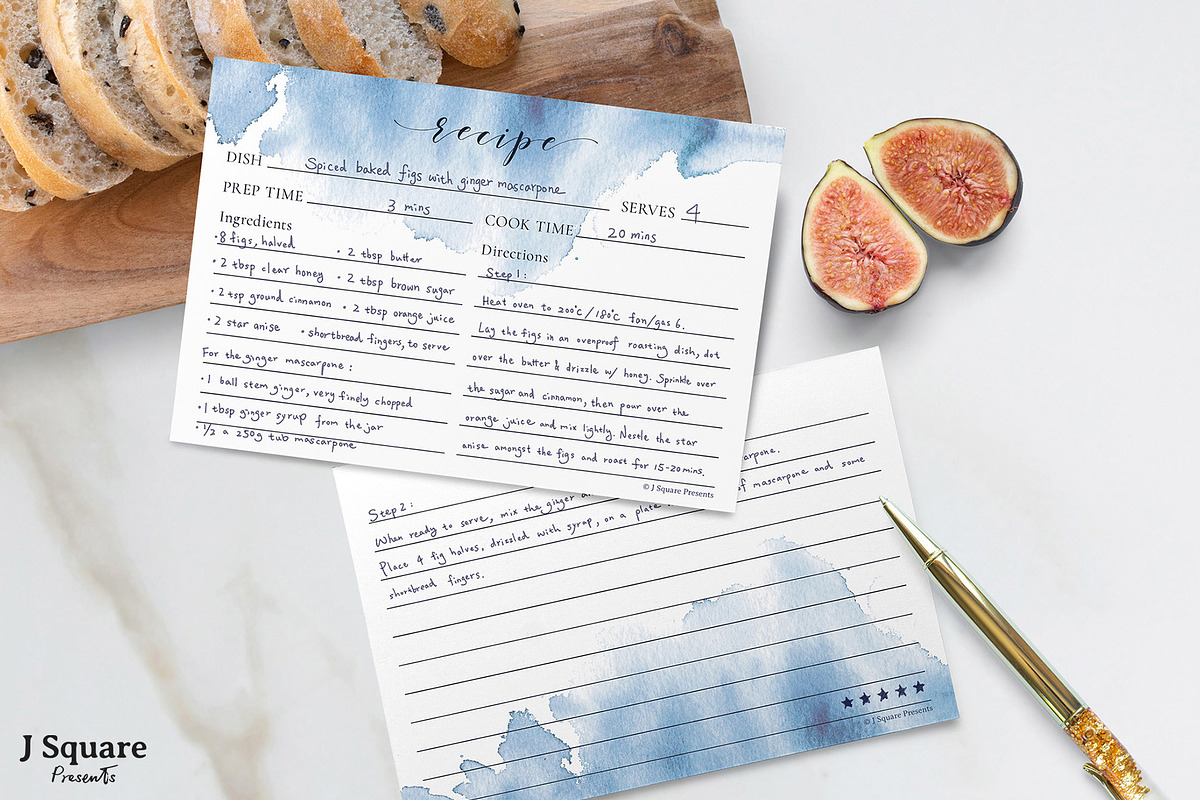 recipe
DISH Spiced baked figs with ginger mascarpone
SERVES 4
PREP TIME 3 mins
COOK TIME 20 mins
Ingredients
• 8 figs, halved • 2 tbsp butter
• 2 tbsp clear honey • 2 tbsp brown sugar
• 2 tsp ground cinnamon • 2 tbsp orange juice
• 2 star anise • shortbread fingers, to serve
For the ginger mascarpone:
• 1 ball stem ginger, very finely chopped
• 1 tbsp ginger syrup from the jar
• 1/2 a 250g tub mascarpone
Directions
Step 1:
Heat oven to 200°C/180°C fan/gas 6.
Lay the figs in an ovenproof roasting dish, dot
over the butter & drizzle w/ honey. Sprinkle over
the sugar and cinnamon, then pour over the
orange juice and mix lightly. Nestle the star
anise amongst the figs and roast for 15-20mins.
© J Square Presents
Step 2:
When ready to serve, mix the ginger arpone.
Place 4 fig halves, drizzled with syrup, on a plate of mascarpone and some
shortbread fingers.
★★★★★
© J Square Presents
J Square
Presents